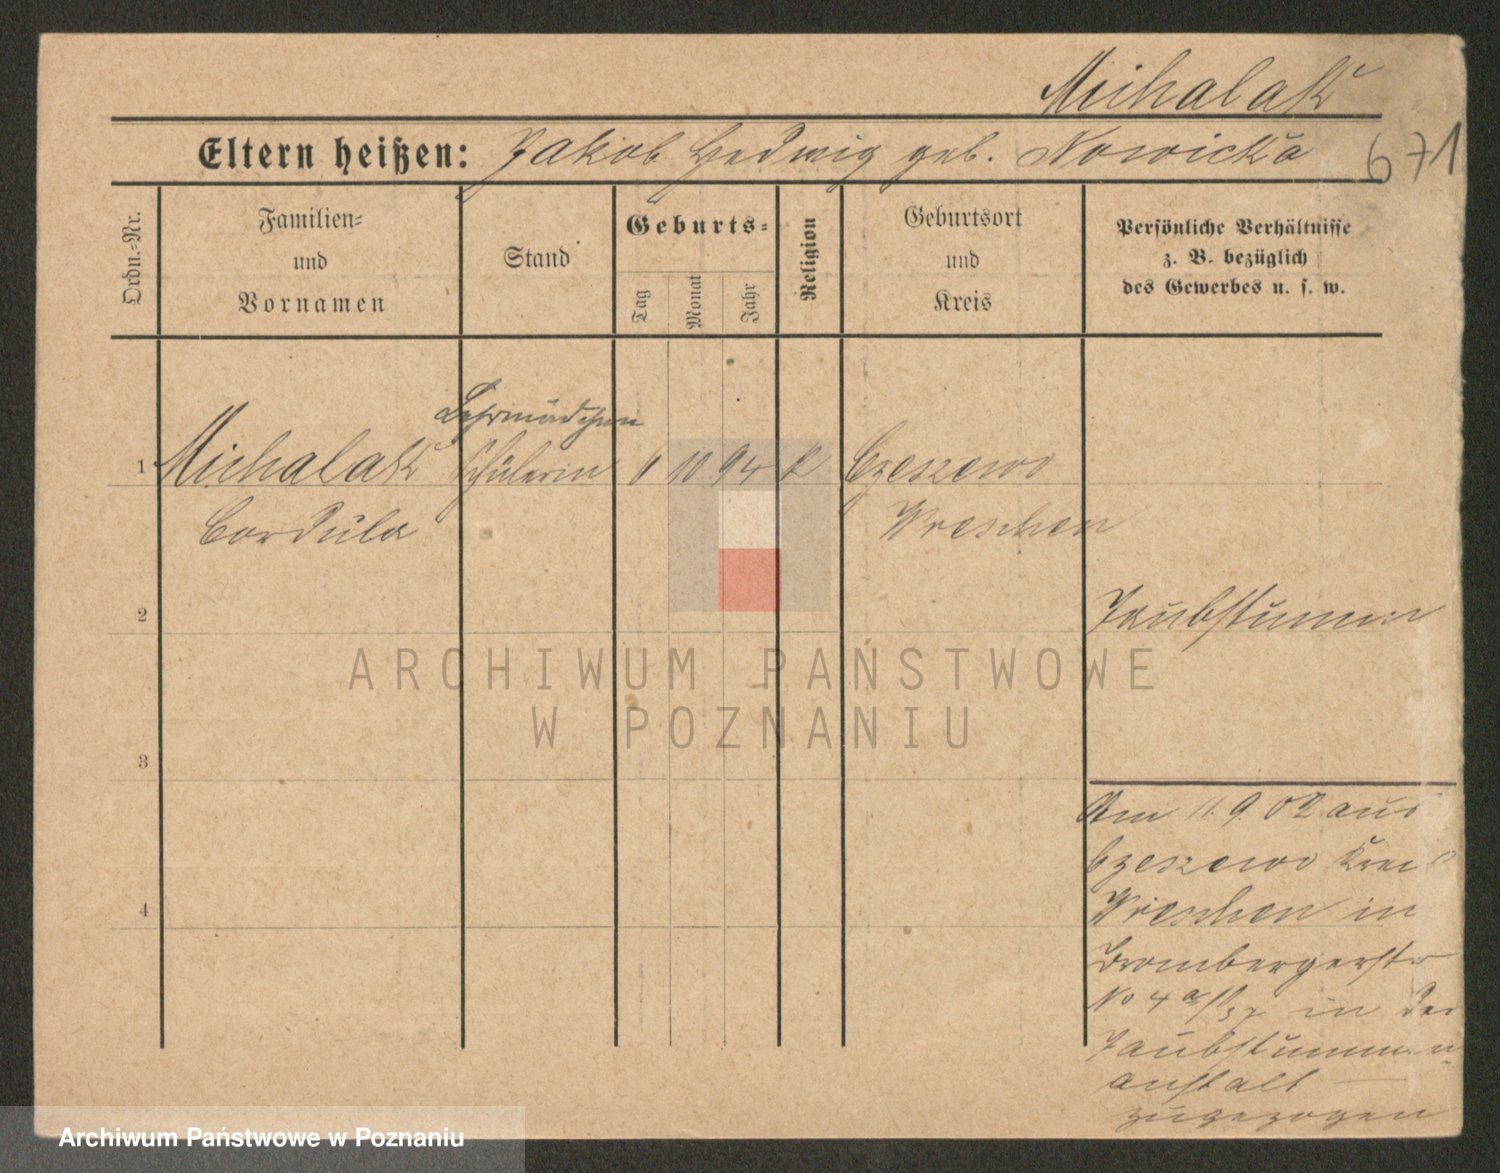 Michalak
Eltern heißen: Jakob Hedwig geb. Nowicka 671
Ordn.-Nr.
Familien-
und
Vornamen
Stand
Geburts-
Tag
Monat
Jahr
Religion
Geburtsort
und
Kreis
Persönliche Verhältnisse
z. B. bezüglich
des Gewerbes u. s. w.
Lehrmädchen
1 Michalak Schülerin 10 94 K Czeszewo
Cordula Wreschen
2 Taubstumm
3
Am 11.9.02 aus
Czeszewo Kreis
Wreschen in
Brombergerstr
No 4 a/37 in der
Taubstummen-
anstalt
zugezogen
4
ARCHIWUM PAŃSTWOWE
W POZNANIU
Archiwum Państwowe w Poznaniu